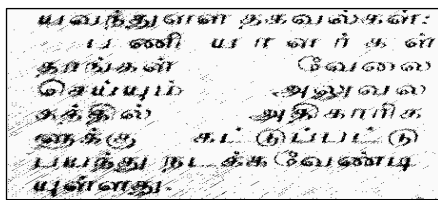 யவந்துள்ள தகவல்கள்:
பணியாளர்கள்
தாங்கள் வேலை
செய்யும் அலுவல
கத்தில் அதிகாரிக
ளுக்கு கட்டுப்பட்டு
பயந்து நடக்கவேண்டி
யுள்ளது.